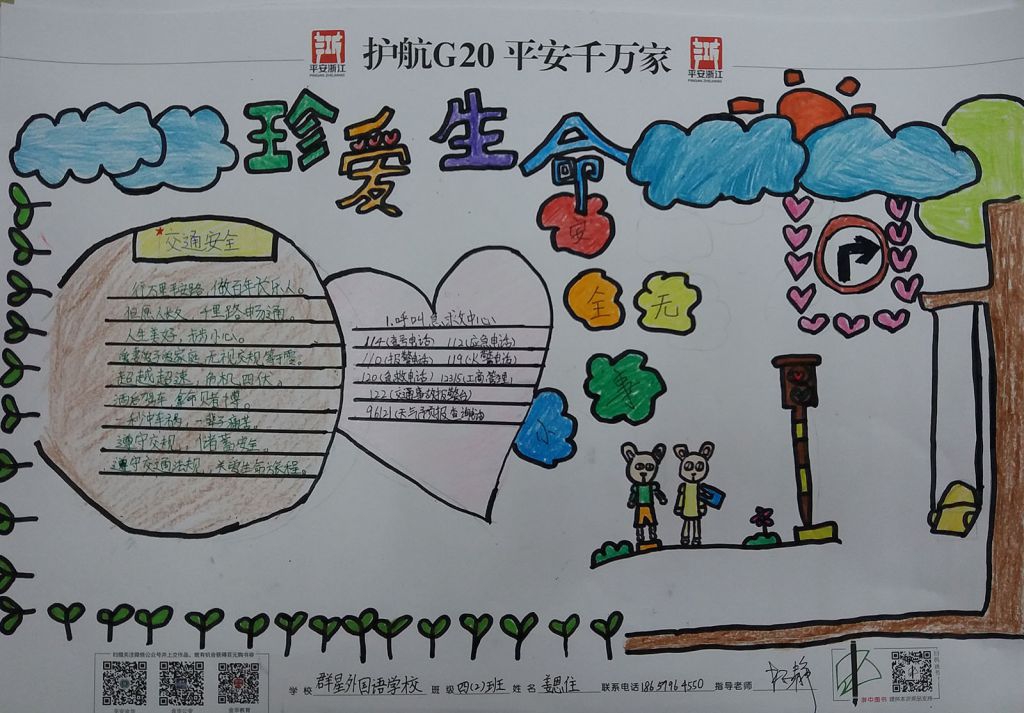 平安浙江
PINGAN ZHEJIANG
护航G20 平安千万家
平安浙江
PINGAN ZHEJIANG
珍爱生命
安
全
无
事
小
交通安全
行万里平安路,做百年长乐人。
但愿人长久,千里路畅通。
人生美好,步步小心。
无视交规等于零。
超越超速,危机四伏。
遵守交规,储蓄安全。
遵守交通法规,关爱生命旅程。
1.呼叫急求救中心
114(查号电话) 112(应急电话)
110(报警电话) 119(火警电话)
120(急救电话) 12315(工商管理)
122(交通事故报警台)
96121(天气预报
扫描关注微信公众号并上交作品,就有机会获得百元购书卡
学校 群星外国语学校 班级 四(2)班 姓名 姜思佳 联系电话 指导老师